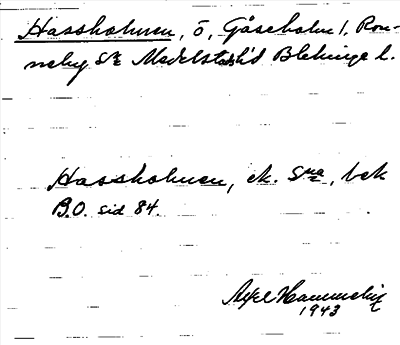 Hassholmen, ö, Gåseholm 1, Ron-
neby Sn Medelstads hd Blekinge l.
Hassholmen, ek. Sma, bck
B.O. sid 84.
Axel Hammelin
1943